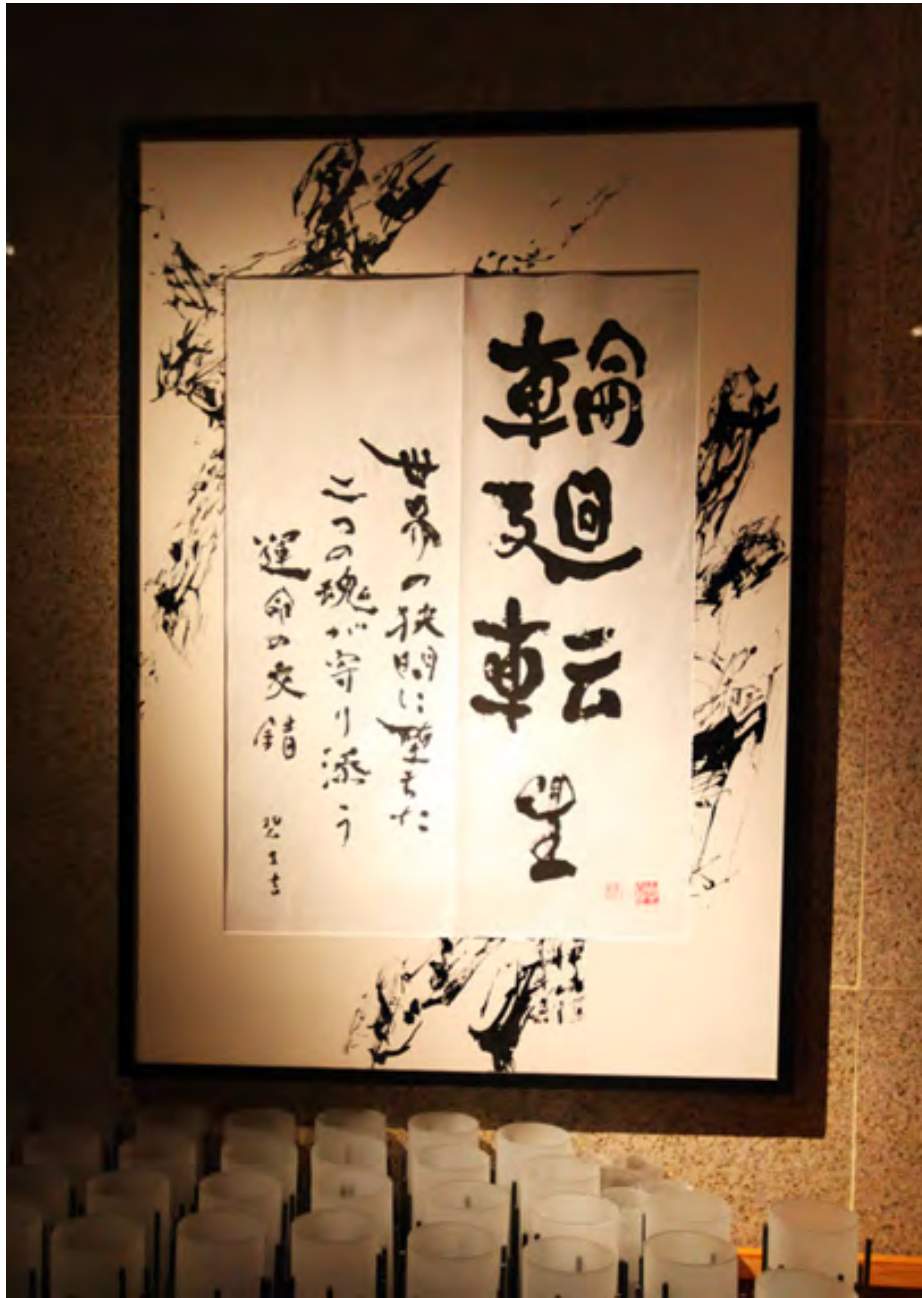 輪廻転
世界の狭間に堕ちた
二つの魂が寄り添う
運命の交錯